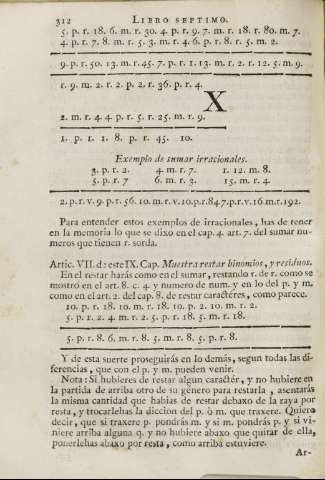 312 LIBRO SEPTIMO.
5. p. r. 18. 6. m. r. 30. 4. p. r. 9. 7. m. r. 18. r. 80. m. 7.
4. p. r. 7. 8. m. r. 5. 3. m. r. 4. 6. p. r. 8. r. 5. m. 2.
9. p. r. 50. 13. m. r. 45. 7. p. r. 1. 13. m. r. 2. r. 12. 5. m. 9.
r. 9. m. 2. r. 2. p. 2. r. 36. p. r. 4.
X
2. m. r. 4. 4. p. r. 5. r. 25. m. r. 9.
1. p. r. 1. 8. p. r. 45. 10.
Exemplo de sumar irracionales.
3. p. r. 2. 4. m. r. 7. r. 12. m. 8.
5. p. r. 7 6. m. r. 3. 15. m. r. 4.
2. p. r. v. 9. p. r. 56. 10. m. r. v. 10. p. r. 84. 7. p. r. v. 16. m. r. 192.
Para entender estos exemplos de irracionales, has de tener
en la memoria lo que se dixo en el cap. 4. art. 7. del sumar nu-
meros que tienen r. sorda.
Artic. VII. de este IX. Cap. Muestra restar binomios, y residuos.
En el restar harás como en el sumar, restando r. de r. como se
mostró en el art. 8. c. 4. y numero de num. y en lo del p. y m.
como en el art. 2. del cap. 8. de restar caractères, como parece.
10. p. r. 18. 10. m. r. 18. 10. p. 2. 10. m. r. 2.
5. p. r. 2. 4. m. r. 2. 5. p. r. 18. 5. m. r. 18.
5. p. r. 8. 6. m. r. 8. 5. m. r. 8. 5. p. r. 8.
Y de esta suerte proseguirás en lo demás, segun todas las di-
ferencias, que con el p. y m. pueden venir.
Nota: Si hubieres de restar algun caractér, y no hubiere en
la partida de arriba otro de su género para restarla, asentarás
la misma cantidad que habias de restar debaxo de la raya por
resta, y trocarlehas la diccion del p. ò m. que traxere. Quiero
decir, que si traxere p. pondrás m. y si m. pondrás p. y si vi-
niere arriba alguna q. y no hubiere abaxo que quitar de ella,
ponerlehas abaxo por resta, como arriba estuviere.
Ar-